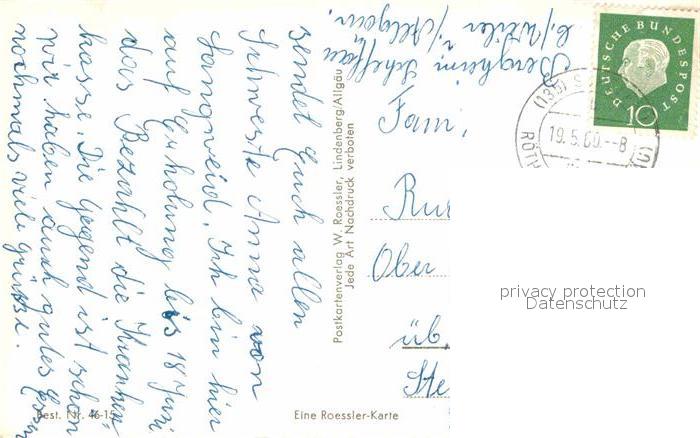 sendet Euch allen
Schweste Anna von
Langweid. Ich bin hier
auf Erholung bis 18 Juni
das Bezahlt die Kranken
kasse. Die Gegend ist schön
wir haben auch gutes Essen
nochmals viele grüsse.
Bergheim Scheffau
b/Weiler i/Allgäu.
Postkartenverlag W. Roessler, Lindenberg/Allgäu
Jede Art Nachdruck verboten
DEUTSCHE BUNDESPOST
10
(13b)
19.5.60.-8
RÖTH
Fam.
Rur
Ober
üb.
Ste
privacy protection
Datenschutz
Best. Nr. 46-15
Eine Roessler-Karte